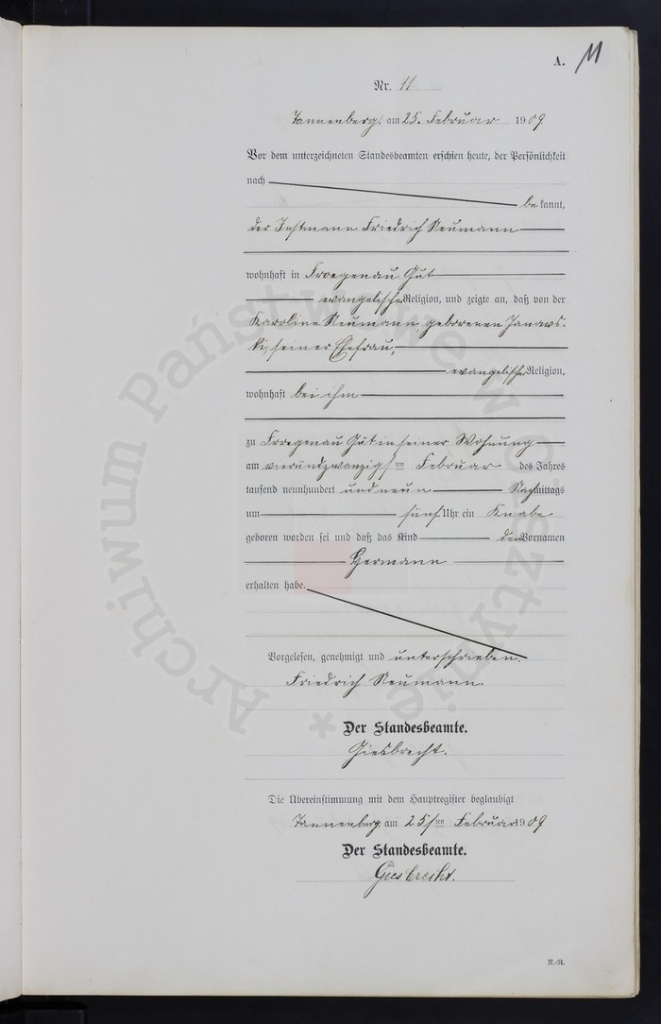 A.
11
Nr. 11
Tannenberg am 25. Februar 1909
Vor dem unterzeichneten Standesbeamten erschien heute, der Persönlichkeit
nach
be kannt,
der Instmann Friedrich Neumann
wohnhaft in Froegenau Gut
evangelischer Religion, und zeigte an, daß von der
Karoline Neumann, geborenen Janows-
ki, seiner Ehefrau,
evangelischer Religion,
wohnhaft bei ihm
zu Froegenau Gut in seiner Wohnung
am vierundzwanzigsten Februar des Jahres
tausend neunhundert und neun Nachmittags
um fünf Uhr ein Knabe
geboren worden sei und daß das Kind den Vornamen
Hermann
erhalten habe.
Vorgelesen, genehmigt und unterschrieben.
Friedrich Neumann.
Der Standesbeamte.
Giesbrecht.
Die Übereinstimmung mit dem Hauptregister beglaubigt
Tannenberg am 25ten Februar 1909
Der Standesbeamte.
Giesbrecht.
Archiwum Państwowe w Olsztynie *